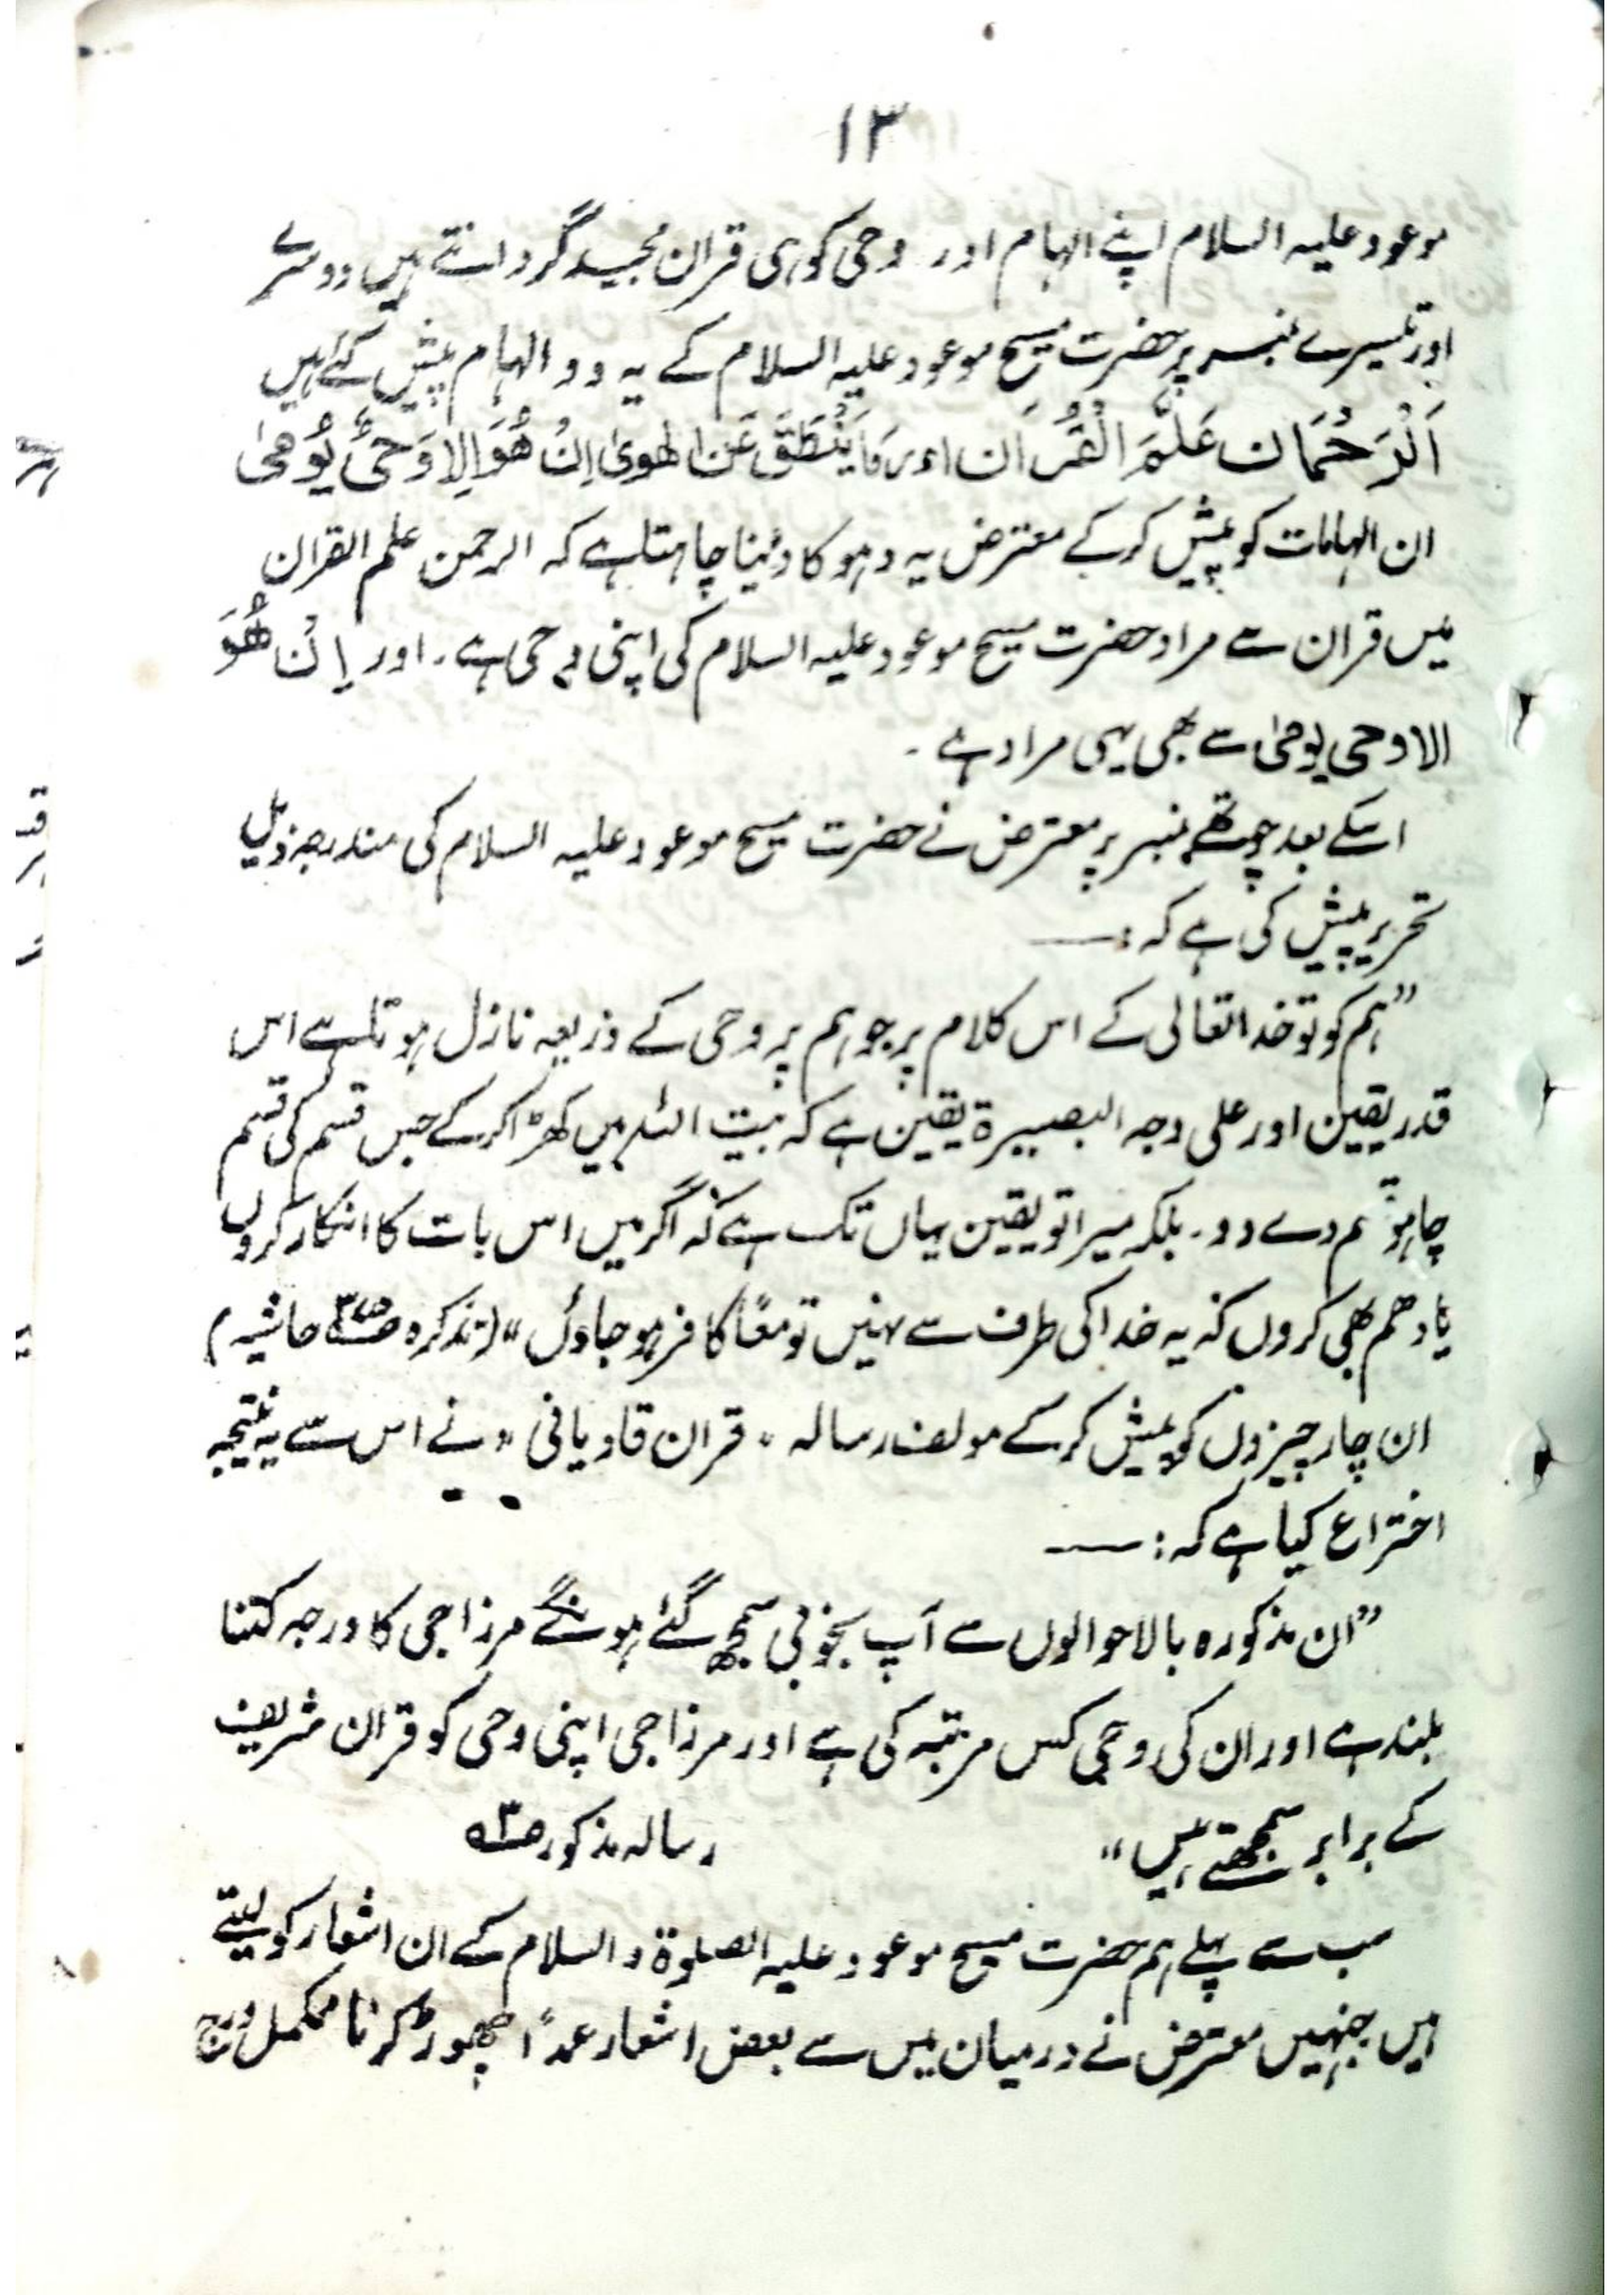 ۱۳
موعود علیہ السلام اپنے الہام اور وحی کو ہی قران مجید گردانتے ہیں دوسرے
اور تیسرے نمبر پر حضرت مسیح موعود علیہ السلام کے یہ دو الہام پیش کئے ہیں
اَلْرَحْمَان عَلَّمَ الْقُرْاٰن اور مَا یَنْطَقَ عَنِ الھویٰ اِنْ ھُوَ اِلا وَحْیٌ یُوحیٰ
ان الہامات کو پیش کر کے معترض یہ دہوکا دینا چاہتا ہے کہ الرحمن علم القران
میں قران سے مراد حضرت مسیح موعود علیہ السلام کی اپنی وحی ہے۔ اور اِنْ ھُوَ
الا وحی یوحیٰ سے بھی یہی مراد ہے۔
اسکے بعد چوتھے نمبر پر معترض نے حضرت مسیح موعود علیہ السلام کی مندرجہ ذیل
تحریر پیش کی ہے کہ:—
”ہم کو تو خدا تعالی کے اس کلام پر جو ہم پر وحی کے ذریعہ نازل ہوتا ہے اس
قدر یقین اور علی وجہ البصیرۃ یقین ہے کہ بیت اللہ میں کھڑا کر کے جس قسم کی قسم
چاہو قسم دے دو۔ بلکہ میرا تو یقین یہاں تک ہے کہ اگر میں اس بات کا انکار کروں
یا وھم بھی کروں کہ یہ خدا کی طرف سے نہیں تو معًا کافر ہو جاؤں“ (تذکرہ حاشیہ)
ان چار چیزوں کو پیش کر کے مولف رسالہ ”قران قادیانی“ نے اس سے یہ نتیجہ
اختراع کیا ہے کہ:—
”ان مذکورہ بالا حوالوں سے آپ بخوبی سمجھ گئے ہونگے مرزا جی کا درجہ کتنا
بلند ہے اور ان کی وحی کس مرتبہ کی ہے اور مرزا جی اپنی وحی کو قران شریف
کے برابر سمجھتے ہیں“ رسالہ مذکور
سب سے پہلے ہم حضرت مسیح موعود علیہ الصلوۃ والسلام کے ان اشعار کو لیتے
ہیں جنہیں معترض نے درمیان میں سے بعض اشعار عمداً چھوڑ کر نامکمل درج